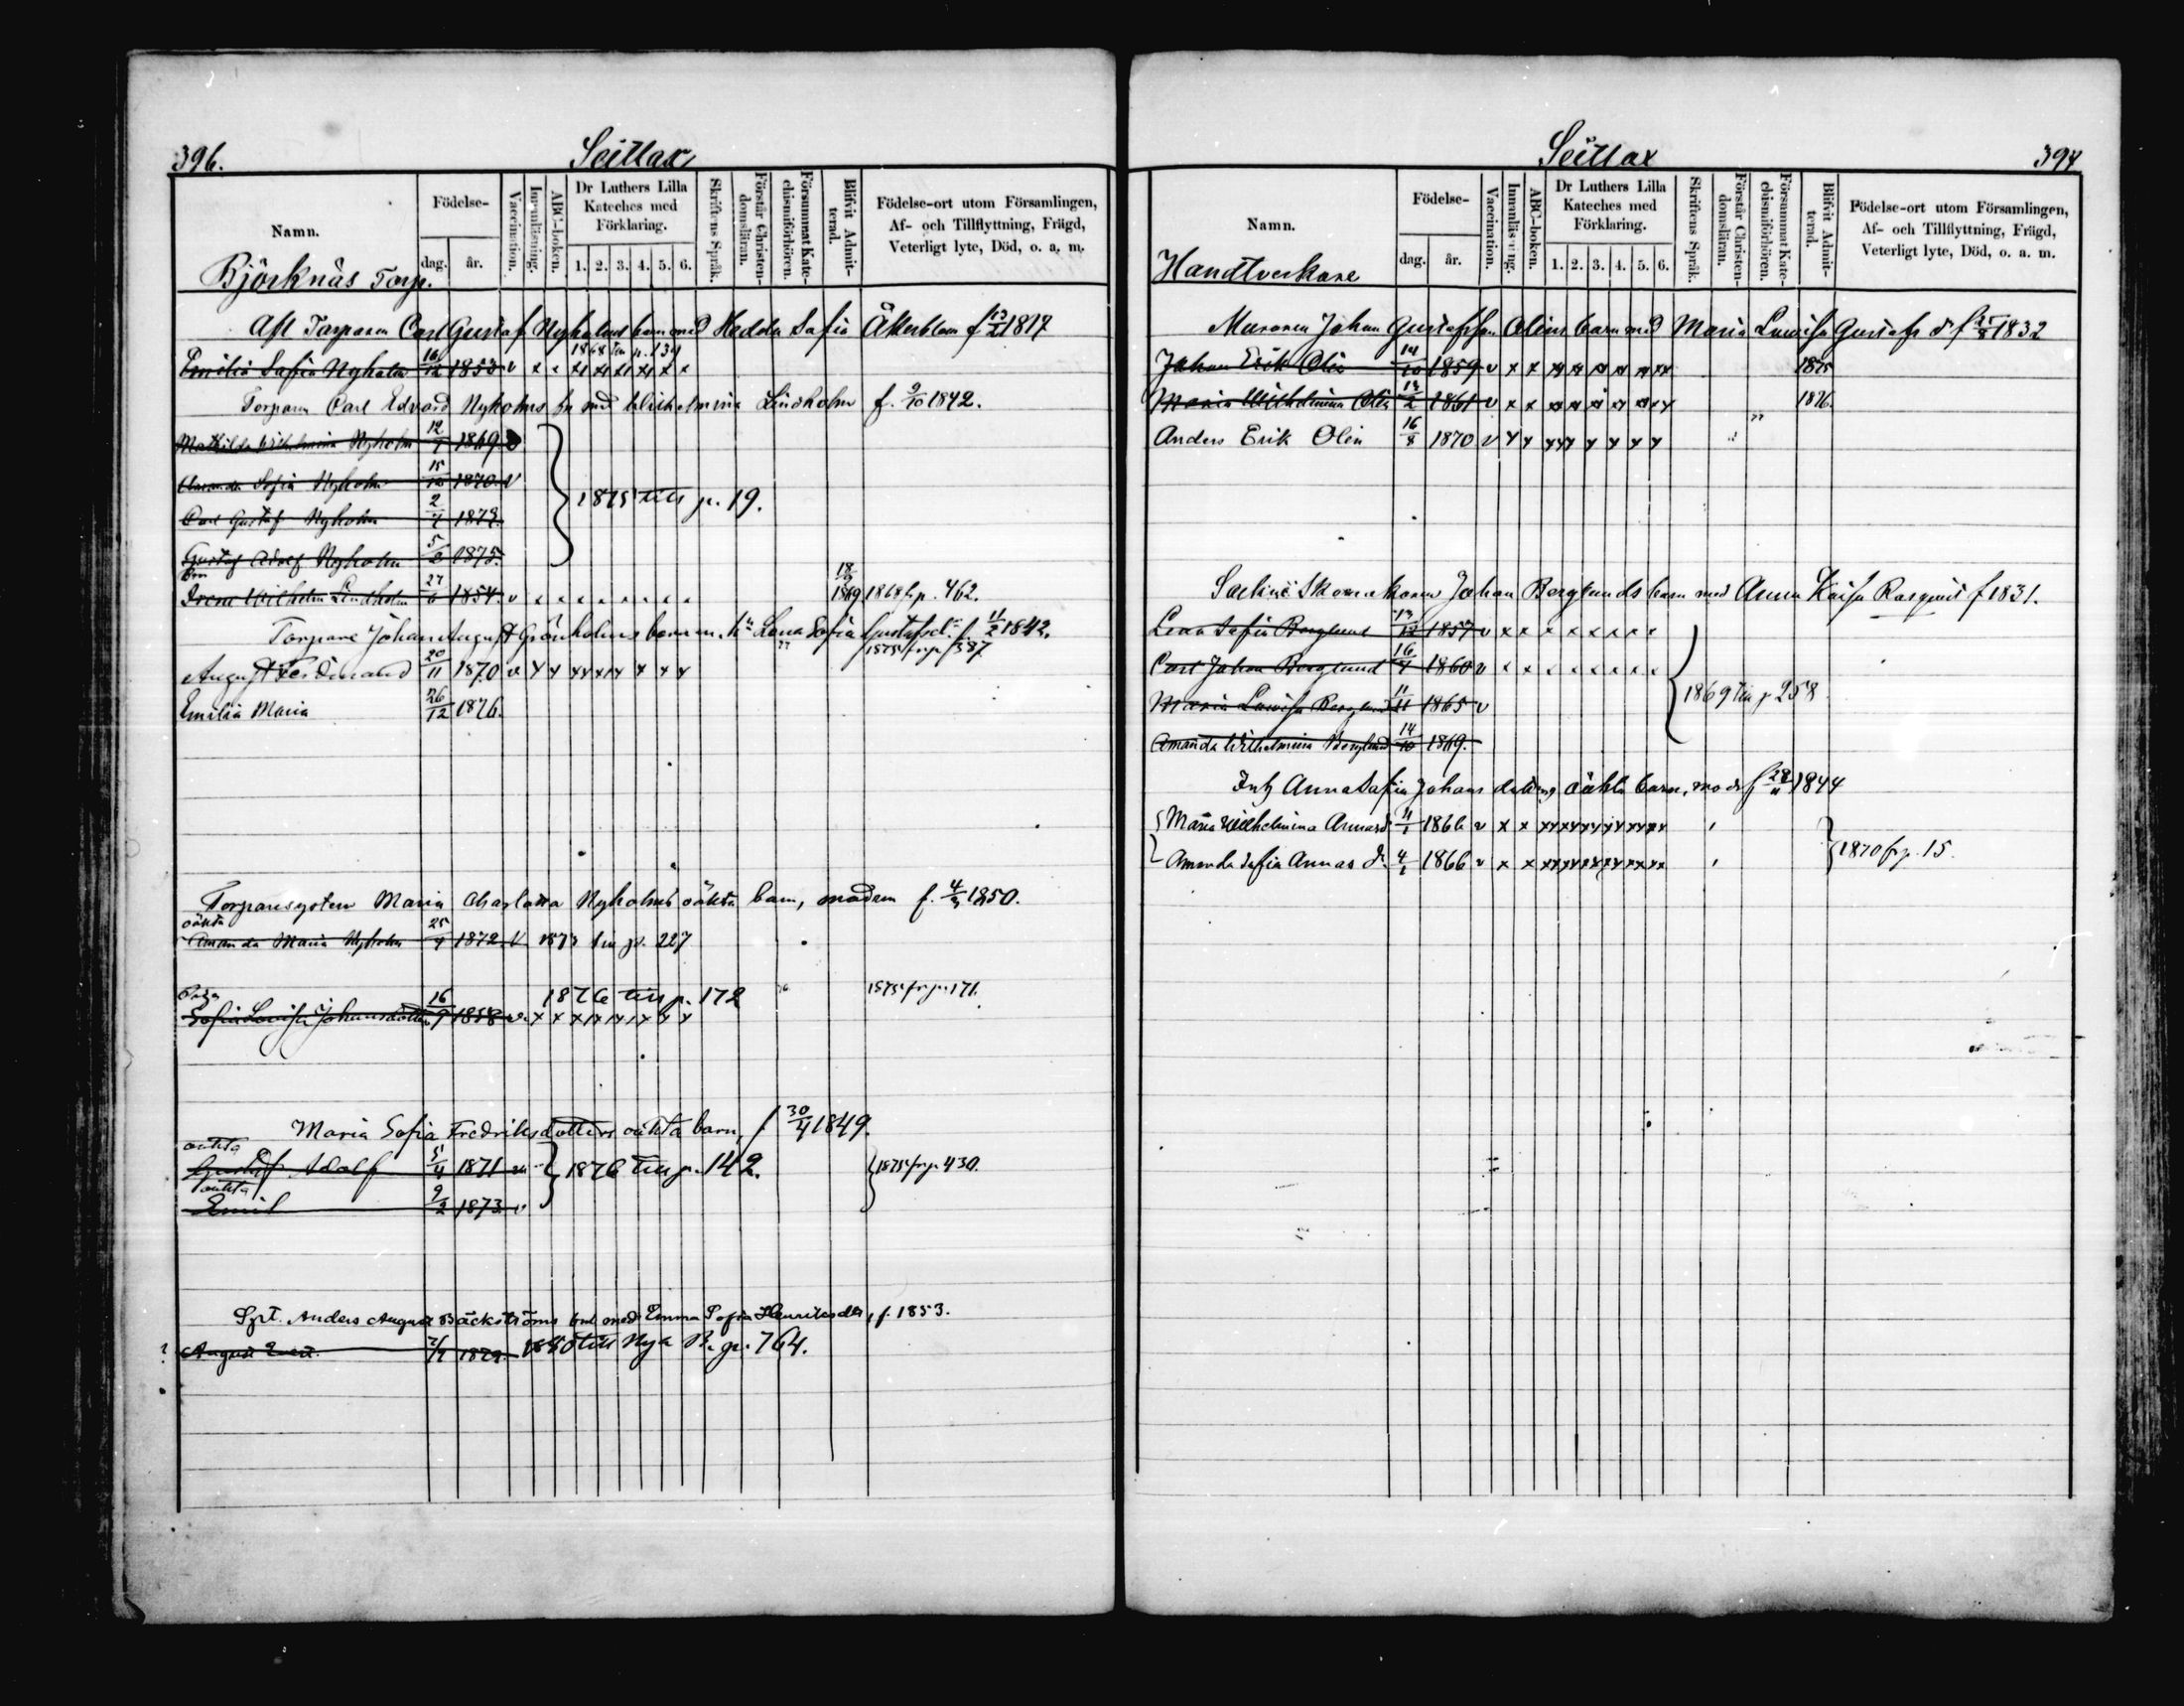 396.
Seitlax
Namn.
Födelse-
dag.
år.
Vaccination.
Innanläsning.
ABC-boken.
Dr Luthers Lilla
Kateches med
Förklaring.
1. 2. 3. 4. 5. 6.
Skriftens Språk.
Förstår Christen-
domsläran.
Försummat Kate-
chismiförhören.
Blifvit Admit-
terad.
Födelse-ort utom Församlingen,
Af- och Tillflyttning, Frägd,
Veterligt lyte, Död, o. a. m.
Björknäs Torp.
Afl Torparen Carl Gustaf Nyholms barn med Hedda Sofia Åkerblom f 1817
1868 till p. 134
Emilia Sofia Nyholm 16/12 1853 v x x x x x x x x
Torparn Carl Edvard Nyholms bn med Wilhelmina Lindholm f. 9/10 1842.
Mathilda Wilhelmina Nyholm 12/1 1869 v
Sofia Nyholm 15/12 1870 v
1875 till p. 19.
Carl Gustaf Nyholm 2/4 1873.
Gustaf Adolf Nyholm 5/6 1875.
Wilhelm Lindholm 27/6 1854 v x x x x x x x x 18/9 1869 1868 fr p. 462.
Torpare Johan August Grönholms barn m. h:u Lena Sofia Gustafsd:r f. 11/2 1842.
1875 fr p 387
August Ferdinand 20/11 1870 v x x x x x x x x
Emilia Maria 26/12 1876.
Torparesystern Maria Charlotta Nyholms oäkta barn, modren f. 4/3 1850.
oäkta
Amanda Maria Nyholm 25/4 1872 v 1873 till p. 227
1876 till p. 172
1875 fr p. 171.
Sofia Lovisa Johansdotter 16/9 1858 v x x x x x x x x
Maria Sofia Fredriksdotters oäkta barn, f 30/4 1849.
oäkta
Gustaf Adolf 5/4 1871 v
1876 till p. 142.
1875 fr p. 430.
oäkta
Emil 9/2 1873 v
Anders August Bäckströms med Emma Sofia Henriksdtr, f. 1853.
August 1879. 1880 till Nya B. p. 764.
Seitlax
394
Namn.
Födelse-
dag.
år.
Vaccination.
Innanläsning.
ABC-boken.
Dr Luthers Lilla
Kateches med
Förklaring.
1. 2. 3. 4. 5. 6.
Skriftens Språk.
Förstår Christen-
domsläran.
Försummat Kate-
chismiförhören.
Blifvit Admit-
terad.
Födelse-ort utom Församlingen,
Af- och Tillflyttning, Frägd,
Veterligt lyte, Död, o. a. m.
Handtverkare
Muraren Johan Gustafsson Olins barn med Maria Lowisa Gustafs d. f 1832
Johan Erik Olin 14/10 1859 v x x x x x x x x 1875
Maria Wilhelmina Olin 13/2 1861 v x x x x x x x x 1876.
Anders Erik Olin 16/8 1870 v x x x x x x x x
Skomakaren Johan Berglunds barn med Anna Kaisa f 1831.
Lena Sofia Berglund 13/12 1857 v x x x x x x x x
Carl Johan Berglund 16/4 1860 v x x x x x x x x
1869 till p 258
Maria Lowisa Berglund 11/11 1865 v
Amanda Wilhelmina Berglund 14/10 1869.
Inh Anna Sofia Johans dotters oäkta barn, mod f 28/11 1844
Maria Wilhelmina Annasd 4/1 1866 v x x x x x x x x
1870 fr p. 15.
Amanda Sofia Annas d. 4/1 1866 v x x x x x x x x